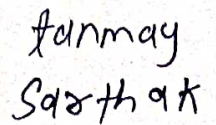 tanmay
Sarthak